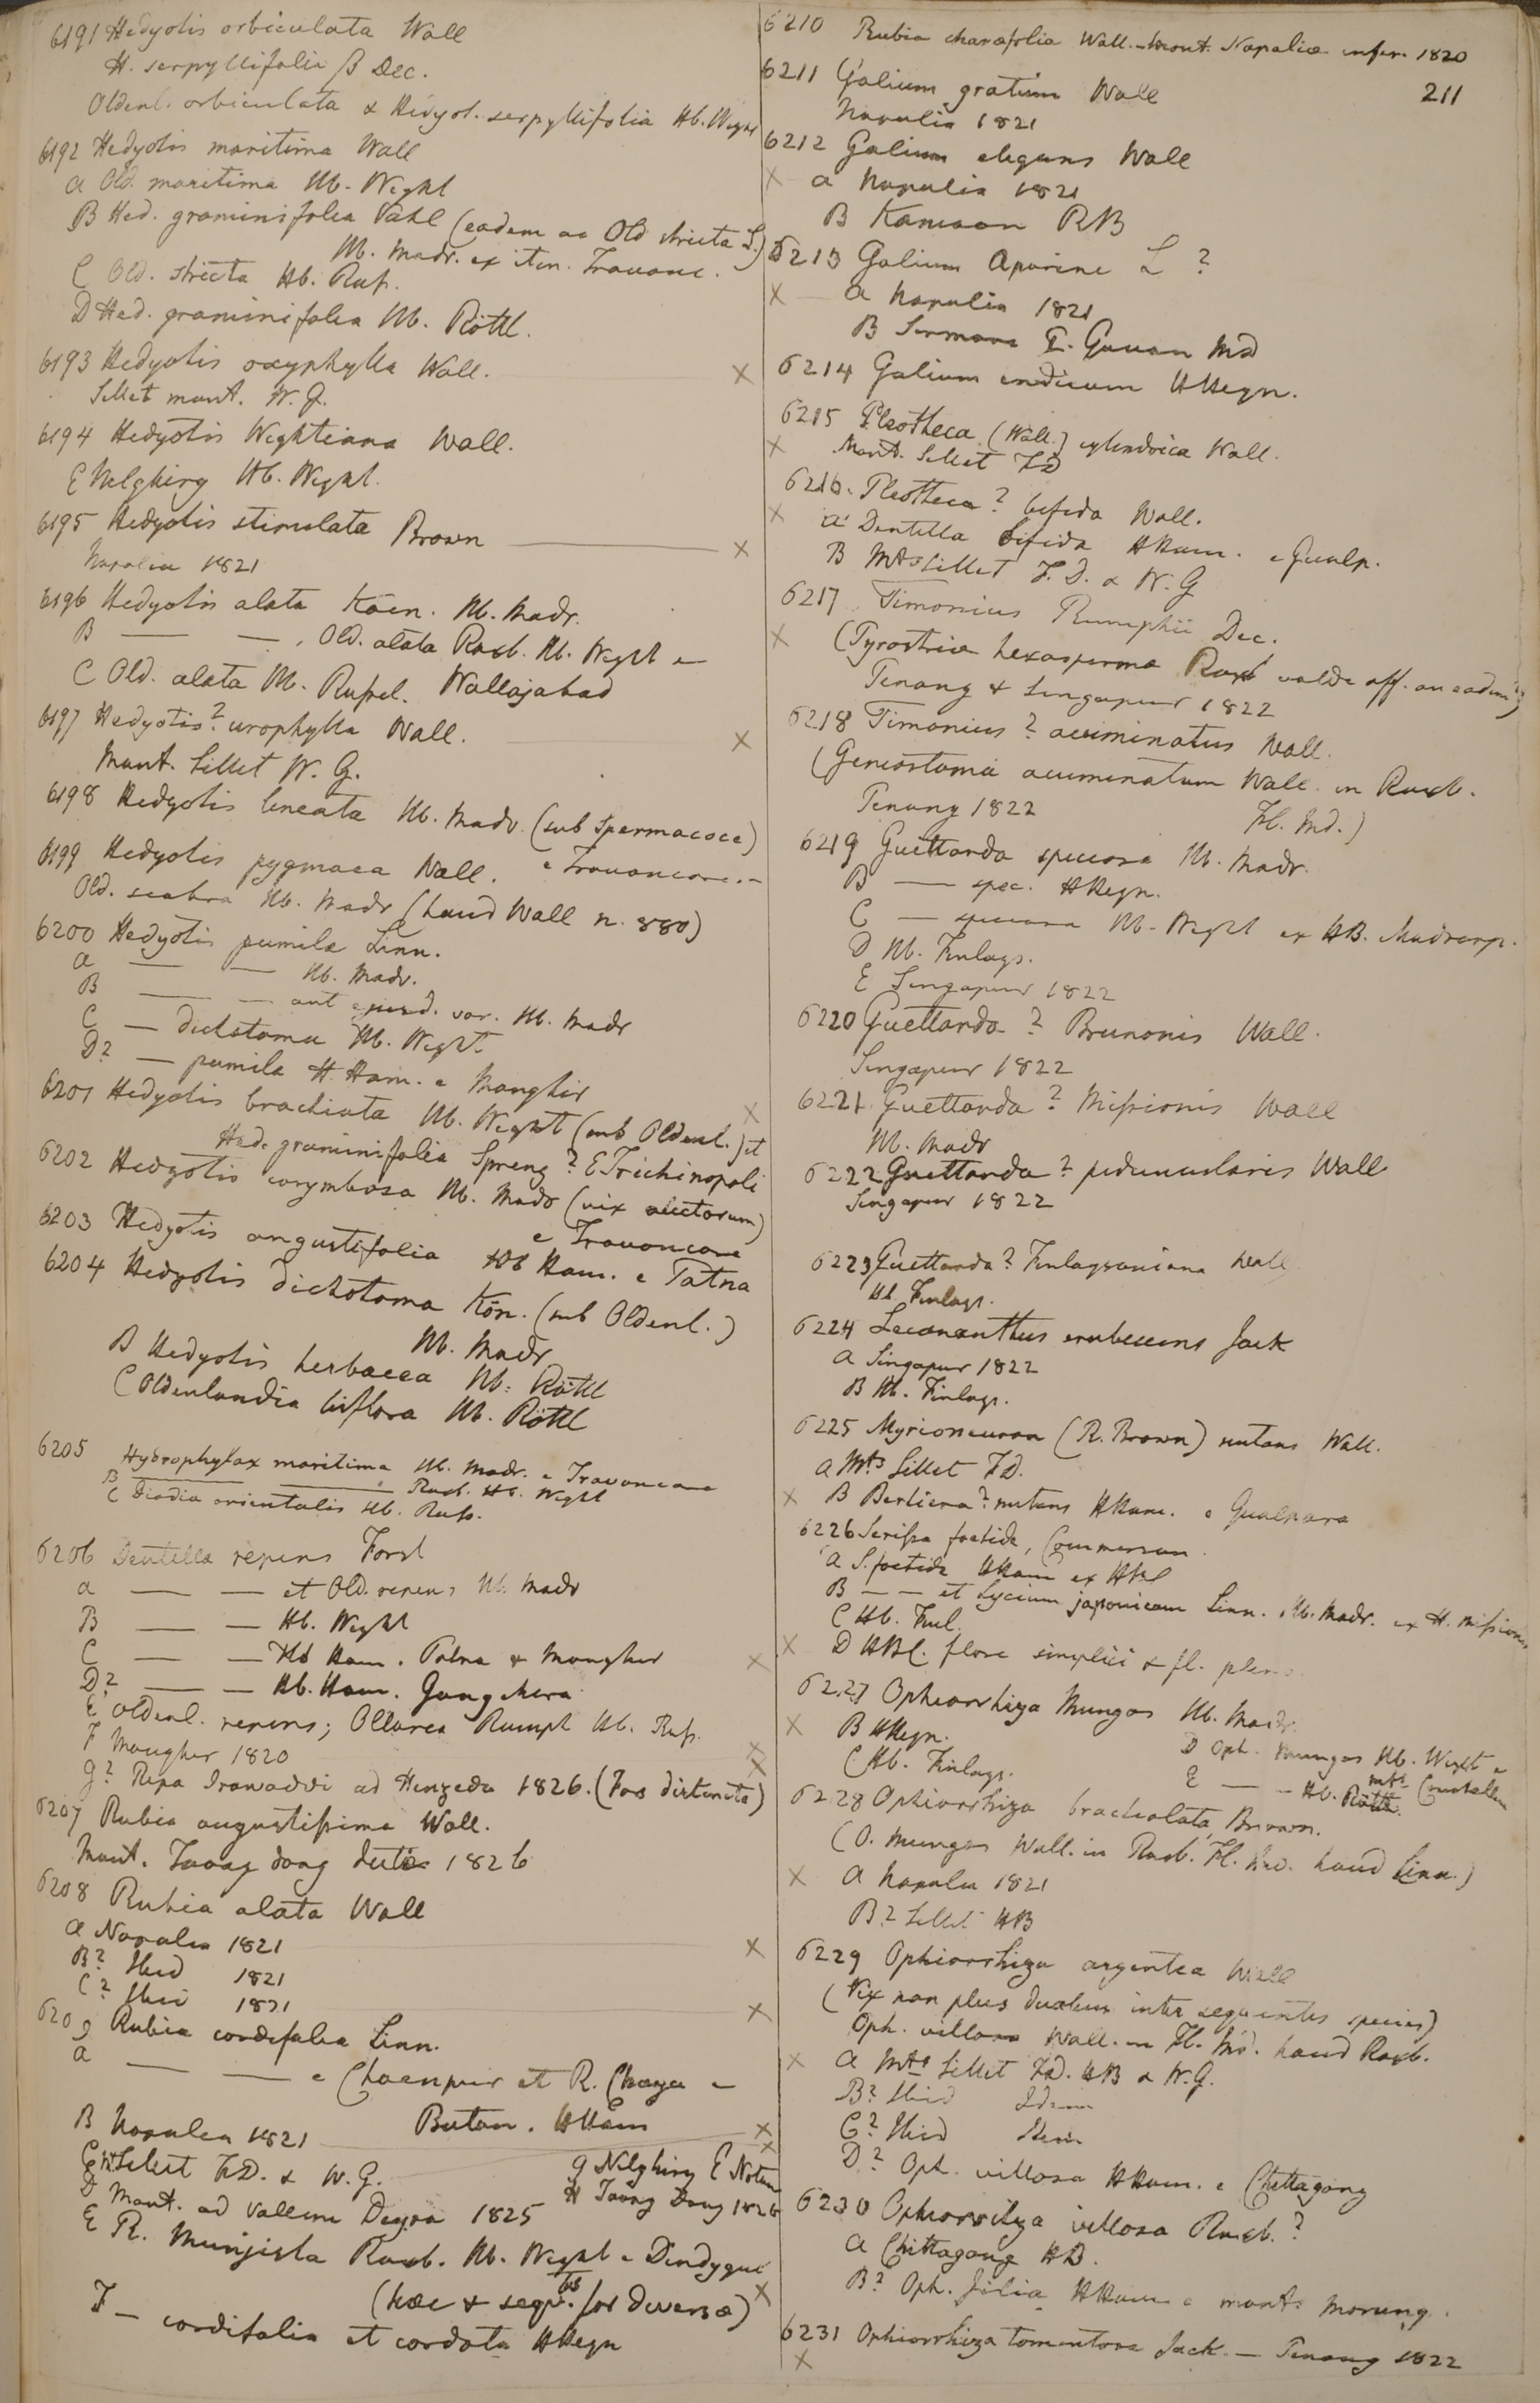 6191 Hedyotis orbiculata Wall
H. serpyllifolia β Dec.
Oldenl. orbiculata & Hedyot. serpyllifolia Hb. Wight
6192 Hedyotis maritima Wall
a Old. maritima Hb. Wight
B Hed. graminifolia Vahl (eadem ac Old stricta L.)
Hb. Madr. ex itin. Travanc.
C Old. stricta Hb. Russ.
D Hed. graminifolia Hb. Röttl.
6193 Hedyotis oxyphylla Wall. X
Sillet mont. W. G.
6194 Hedyotis Wightiana Wall.
E Nelghiry Hb. Wight.
6195 Hedyotis stimulata Brown X
Napalia 1821
6196 Hedyotis alata Koen. Hb. Madr.
B — — . Old. alata Roxb. Hb. Wight e
C Old. alata Hb. Russel. Wallajabad
6197 Hedyotis? urophylla Wall. X
Mont. Sillet W. G.
6198 Hedyotis lineata Hb. Madr. (sub Spermacoce)
e Travancore.
6199 Hedyotis pygmaea Wall.
Old. scabra Hb. Madr (haud Wall n. 880)
6200 Hedyotis pumila Linn.
a — — Hb. Madr.
B — — aut ejusd. var. Hb. Madr
C — dichotoma Hb. Wight
D? — pumila H. Ham. e Monghir
6201 Hedyotis brachiata Hb. Wight (sub Oldenl.) et X
Hed. graminifolia Spreng? E Trichinopoli
6202 Hedyotis corymbosa Hb. Madr (vix auctorum)
e Travancore
6203 Hedyotis angustifolia Hb Ham. e Patna
6204 Hedyotis dichotoma Kön. (sub Oldenl.)
Hb. Madr
B Hedyotis herbacea Hb. Röttl
C Oldenlandia biflora Hb. Röttl
6205 Hydrophylax maritima Hb. Madr. e Travancore
B — — Roxb. Hb. Wight
C Diodia orientalis Hb. Russ.
6206 Dentella repens Forst
a — — et Old. repens Hb. Madr
B — — Hb. Wight
C — — Hb Ham. Patna & Mongher X
D? — — Hb. Ham. Gongachora
E Oldenl. repens; Ollarea Rumph Hb. Russ.
F Mongher 1820 X
g? Ripa Irawaddi ad Henzeda 1826. (Fors distincta) X
6207 Rubia angustissima Wall.
Mont. Taong dong 1826
6208 Rubia alata Wall
a Napalia 1821 X
B? Ibid 1821
C? Ibid 1821 X
6209 Rubia cordifolia Linn.
a — — e Chaenpur et R. Chaya e
Butan. HHam
B Napalia 1821 X
C Mt Sillet F.D. & W. G. X
g Nilghiry E Noton
D Mont. ad vallem Deyra 1825
H Taong Dong 1826
E R. Munjista Roxb. Hb. Wight e Dindygul
(haec & seqts. fors diversae) X
F — cordifolia et cordata HHeyn
6210 Rubia charaefolia Wall. — Mont. Napaliae infer. 1820
211
6211 Galium gratum Wall
Napalia 1821
6212 Galium elegans Wall
X a Napalia 1821
B Kamaon RB
6213 Galium Aparine L ?
X a Napalia 1821
B Sirmore T. Govan Md
6214 Galium indicum HHeyn.
6215 Pleotheca (Wall.) cylindrica Wall.
X Mont. Sillet FD
6216. Pleotheca? bifida Wall.
X a Dentella bifida HHam. e Gualp.
B Mts Sillet F. D. & W. G
6217 Timonius Rumphii Dec.
X (Pyrostria hexasperma Roxb valde aff. an eadem?)
Penang & Singapur 1822
6218 Timonius? acuminatus Wall.
(Geniostoma acuminatum Wall. in Roxb.
Fl. Ind.)
Penang 1822
6219 Guettarda speciosa Hb. Madr.
B — spec. HHeyn.
C — speciosa Hb. Wight ex HB. Madrasp.
D Hb. Finlays.
E Singapur 1822
6220 Guettarda? Brunonis Wall.
Singapur 1822
6221 Guettarda? Missionis Wall
Hb. Madr
6222 Guettarda? peduncularis Wall
Singapur 1822
6223 Guettarda? Finlaysoniana Wall
Hb. Finlays.
6224 Lecananthus erubescens Jack
a Singapur 1822
B Hb. Finlays.
6225 Myrioneuron (R. Brown) nutans Wall.
a Mts Sillet FD.
X B Bertiera? nutans HHam. e Gualpara
6226 Serissa foetida, Commerson.
a S. foetida HHam ex HBC
B — — et Lycium japonicum Linn. Hb. Madr. ex H. Missionis
C Hb. Finl.
X D HBC. flore simplici & fl. pleno.
6227 Ophiorrhiza Mungos Hb. Madr.
X B HHeyn.
D Oph. mungos Hb. Wight e
C Hb. Finlays.
mts Courtallum
E — — Hb. Röttl.
6228 Ophiorrhiza bracteolata Brown.
(O. Mungos Wall. in Roxb. Fl. Ind. haud Linn.)
X a Napalia 1821
B? Sillet HB
6229 Ophiorrhiza argentea Wall
(Vix non plus duabus inter sequentes species)
Oph. villosa Wall. in Fl. Ind. haud Roxb.
X a Mts Sillet FD. HB & W. G.
B? Ibid Idem
C? Ibid Idem
D? Oph. villosa HHam. e Chittagong
6230 Ophiorrhiza villosa Roxb.?
a Chittagong HB.
B? Oph. HHam e mont. Morung.
6231 Ophiorrhiza tomentosa Jack. — Penang 1822
X